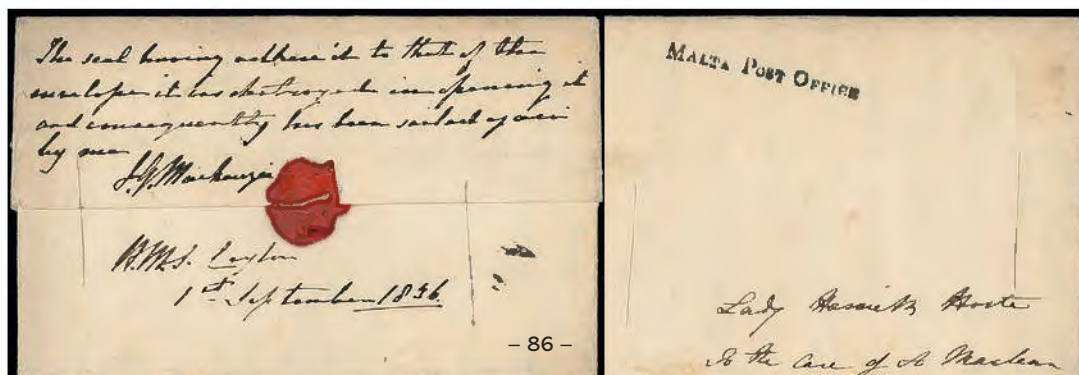 The seal having adhered to that of the
envelope it was destroyed in opening it
and consequently has been sealed again
by me
J.G. Mackenzie
H.M.S. Ceylon
1st September 1836.
– 86 –
MALTA POST OFFICE
Lady Harriet Hoste
To the care of A Maclean